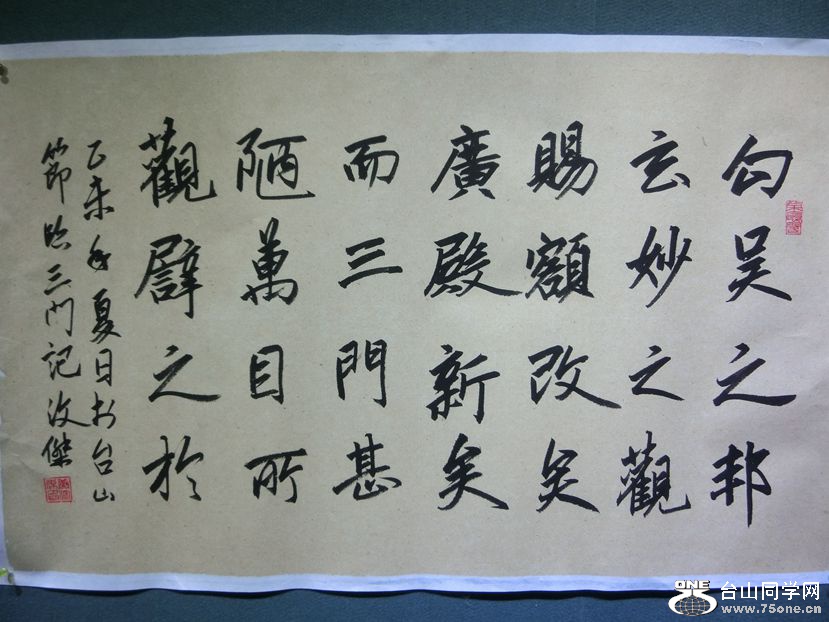 勾吴之邦
玄妙之觀
賜額改矣
廣殿新矣
而三門甚
陋萬目所
觀譬之於
乙未年夏日於台山
節臨三門記 汝傑
ONE
台山同学网
www.75one.cn